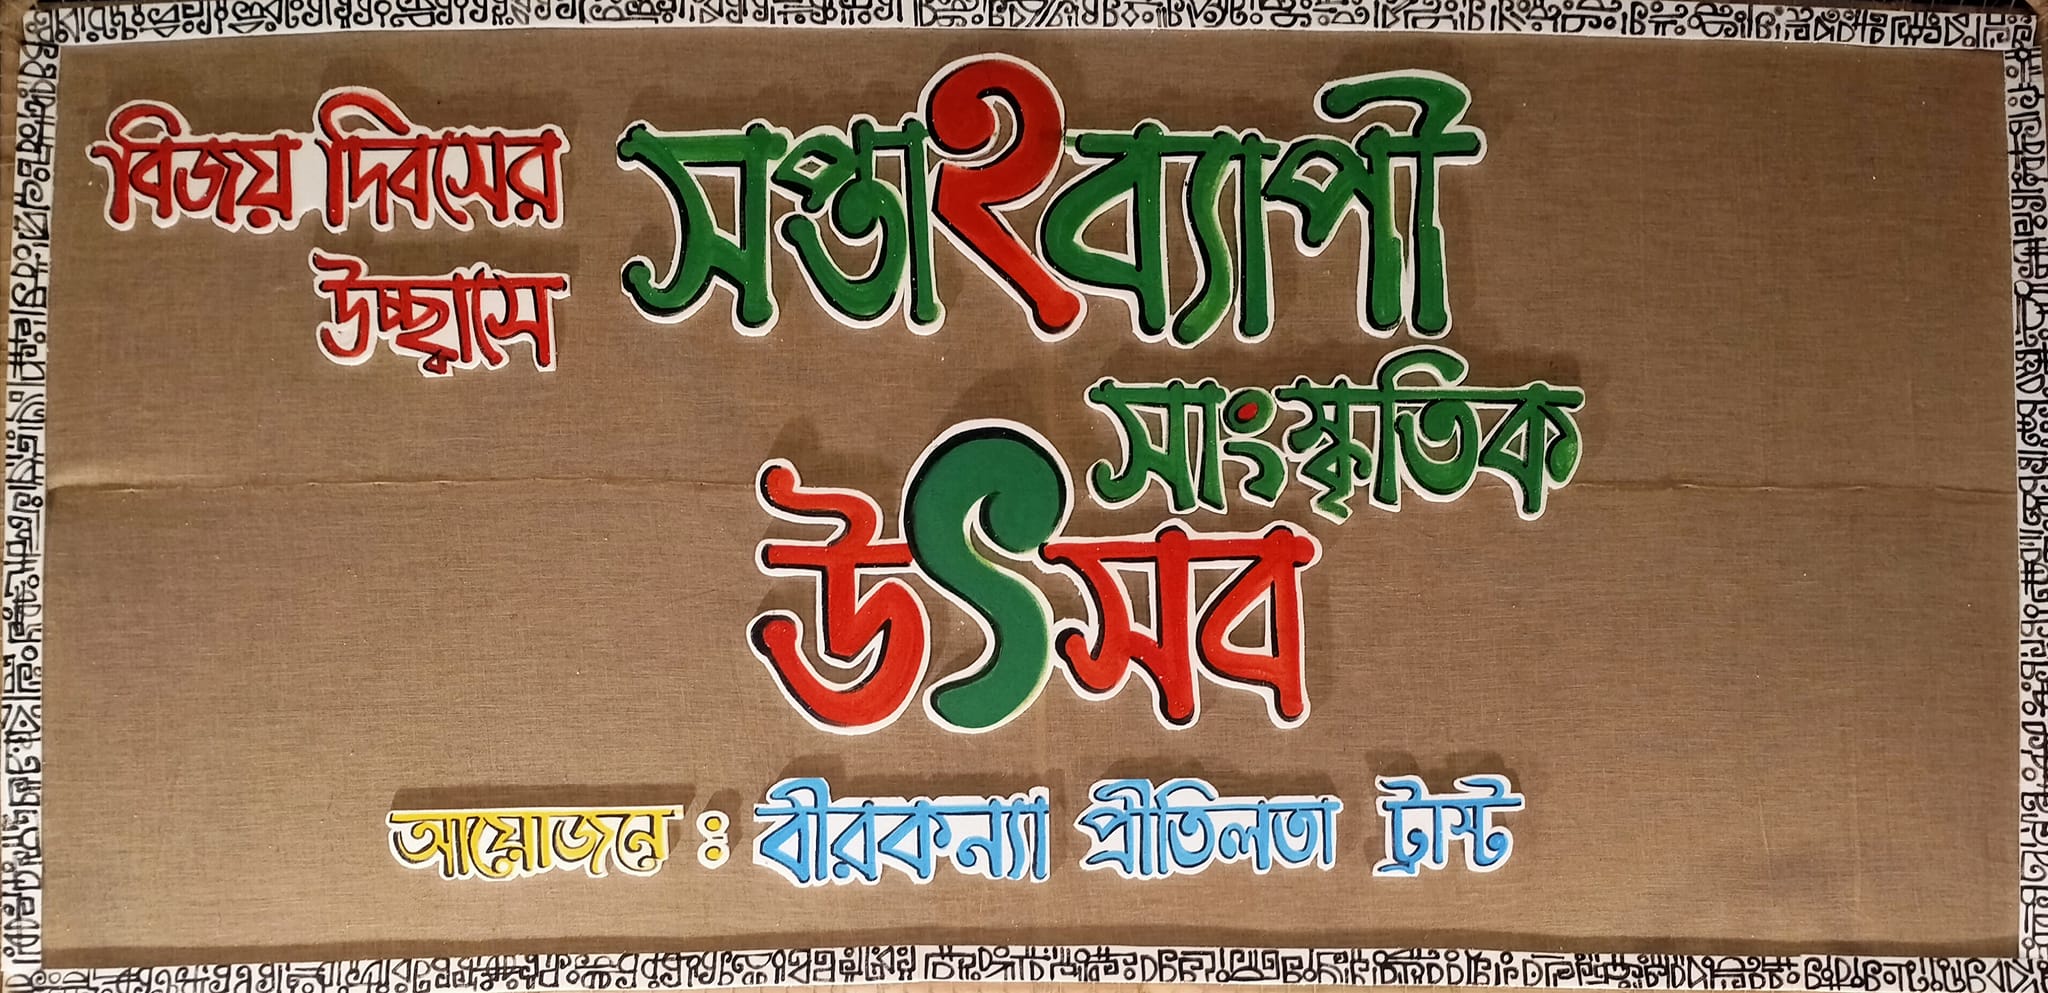 বিজয় দিবসের
উচ্ছ্বাসে
সপ্তাহব্যাপী
সাংস্কৃতিক
উৎসব
আয়োজনে : বীরকন্যা প্রীতিলতা ট্রাস্ট